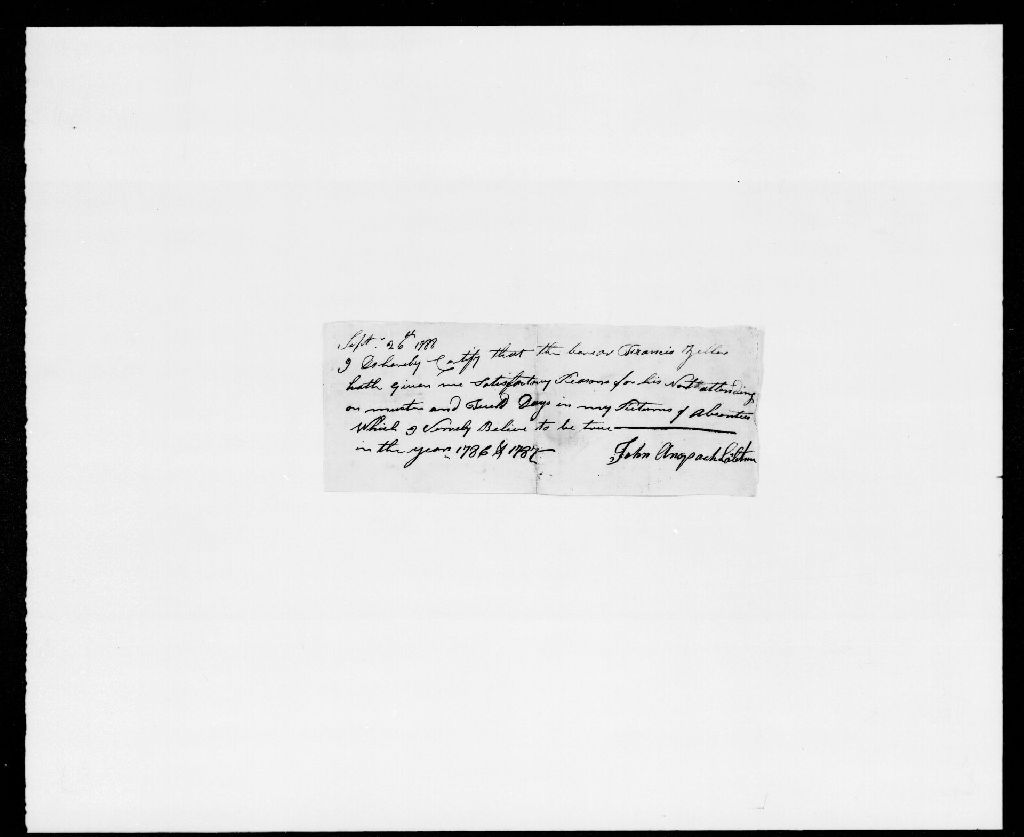 Septr. 26th 1788
I Do hereby Certify that the bearer Francis Zeller
hath given me Satisfactory Reasons for his Not attending
on muster and Field Days in my Returns of Absentees
Which I Verrely Believe to be true
in the years 1786 & 1787
John Angpach